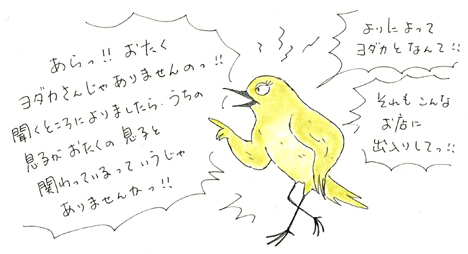 あらっ!! おたく
ヨダカさんじゃありませんのっ!!
聞くところによりましたら、うちの
息子がおたくの息子と
関わっているっていうじゃ
ありませんかっ!!
よりによって
ヨダカとなんて!!
それもこんな
お店に
出入りしてっ!!